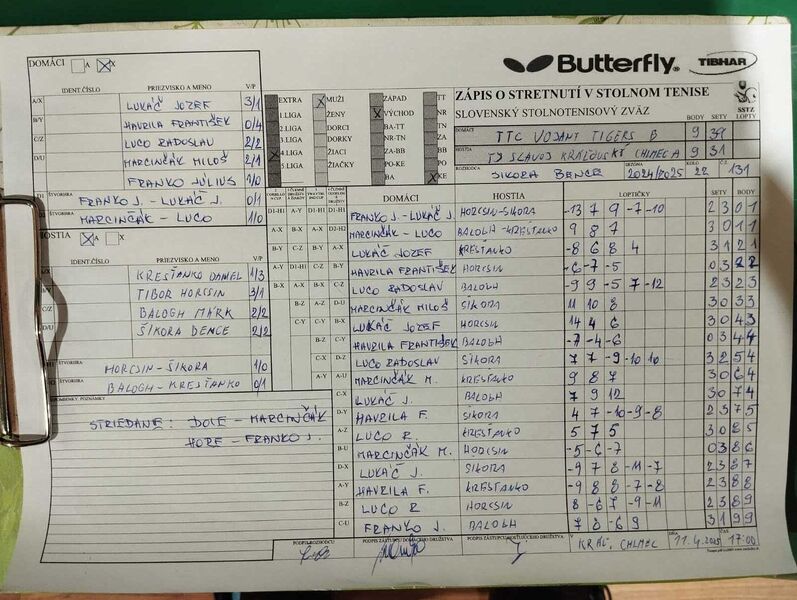 DOMÁCI A X
IDENT.ČÍSLO PRIEZVISKO A MENO V/P
A/X LUKÁČ JOZEF 3/1
B/Y HAVRILA FRANTIŠEK 0/4
C/Z LUCO RADOSLAV 2/2
D/U MARCINČÁK MILOŠ 2/1
FRANKO JÚLIUS 1/0
ŠTVORHRA FRANKO J. - LUKÁČ J. 0/1
MARCINČÁK - LUCO 1/0
HOSTIA A X
IDENT.ČÍSLO PRIEZVISKO A MENO V/P
KRESŤANKO DANIEL 1/3
TIBOR HORCSIN 3/1
BALOGH MÁRK 2/2
ŠIKORA BENCE 2/2
ŠTVORHRA HORCSIN - ŠIKORA 1/0
BALOGH - KRESŤANKO 0/1
POZNÁMKY
STRIEDANE: DOLE - MARCINČÁK
HORE - FRANKO J.
Butterfly TIBHAR
EXTRA X MUŽI ZÁPAD TT
1.LIGA ŽENY X VÝCHOD NR
2.LIGA DORCI BA-TT TN
3.LIGA DORKY NR-TN ZA
4.LIGA ŽIACI ZA-BB BB
5.LIGA ŽIAČKY PO-KE PO
BA X KE
ZÁPIS O STRETNUTÍ V STOLNOM TENISE
SLOVENSKÝ STOLNOTENISOVÝ ZVÄZ
SSTZ
BODY SETY LOPTY
DOMÁCI TTC VOJANY TIGERS B 9
HOSTIA TJ SLAVOJ KRÁĽOVSKÝ CHLMEC A 9 31
ROZHODCA SIKORA BENCE SEZÓNA 2024/2025 KOLO 22 Č. 131
DOMÁCI HOSTIA LOPTIČKY SETY BODY
FRANKO J. - LUKÁČ J. HORCSIN-SIKORA -13 7 9 -7 -10 2 3 0 1
MARCINČÁK - LUCO BALOGH - KRESTANKO 9 8 7 3 0 1 1
LUKÁČ JOZEF KRESŤANKO -8 6 8 4 3 1 2 1
HAVRILA FRANTIŠEK HORCSIN -6 -7 -5 0 3 2 2
LUCO RADOSLAV BALOGH -9 9 -5 7 -12 2 3 2 3
MARCINČÁK MILOŠ SIKORA 11 10 8 3 0 3 3
LUKÁČ JOZEF HORCSIN 14 4 6 3 0 4 3
HAVRILA FRANTIŠEK BALOGH -7 -4 -6 0 3 4 4
LUCO RADOSLAV SIKORA 7 7 -9 -10 10 3 2 5 4
MARCINČÁK M. KRESŤANKO 9 8 7 3 0 6 4
LUKÁČ J. BALOGH 7 9 12 3 0 7 4
HAVRILA F. SIKORA 4 7 -10 -9 -8 2 3 7 5
LUCO R. KRESŤANKO 5 7 5 3 0 8 5
MARCINČÁK M. HORCSIN -5 -6 -7 0 3 8 6
LUKÁČ J. SIKORA -9 7 8 -11 -7 2 3 8 7
HAVRILA F. KRESŤANKO -9 8 8 -7 -8 2 3 8 8
LUCO R HORCSIN 8 -6 7 -9 -11 2 3 8 9
FRANKO J. BALOGH 7 8 -6 9 3 1 9 9
PODPIS ROZHODCU PODPIS ZÁSTUPCU DOMÁCEHO DRUŽSTVA PODPIS ZÁSTUPCU HOSŤUJÚCEHO DRUŽSTVA V KRÁĽ. CHLMEC DŇA 11.4.2025 ČAS 17:00